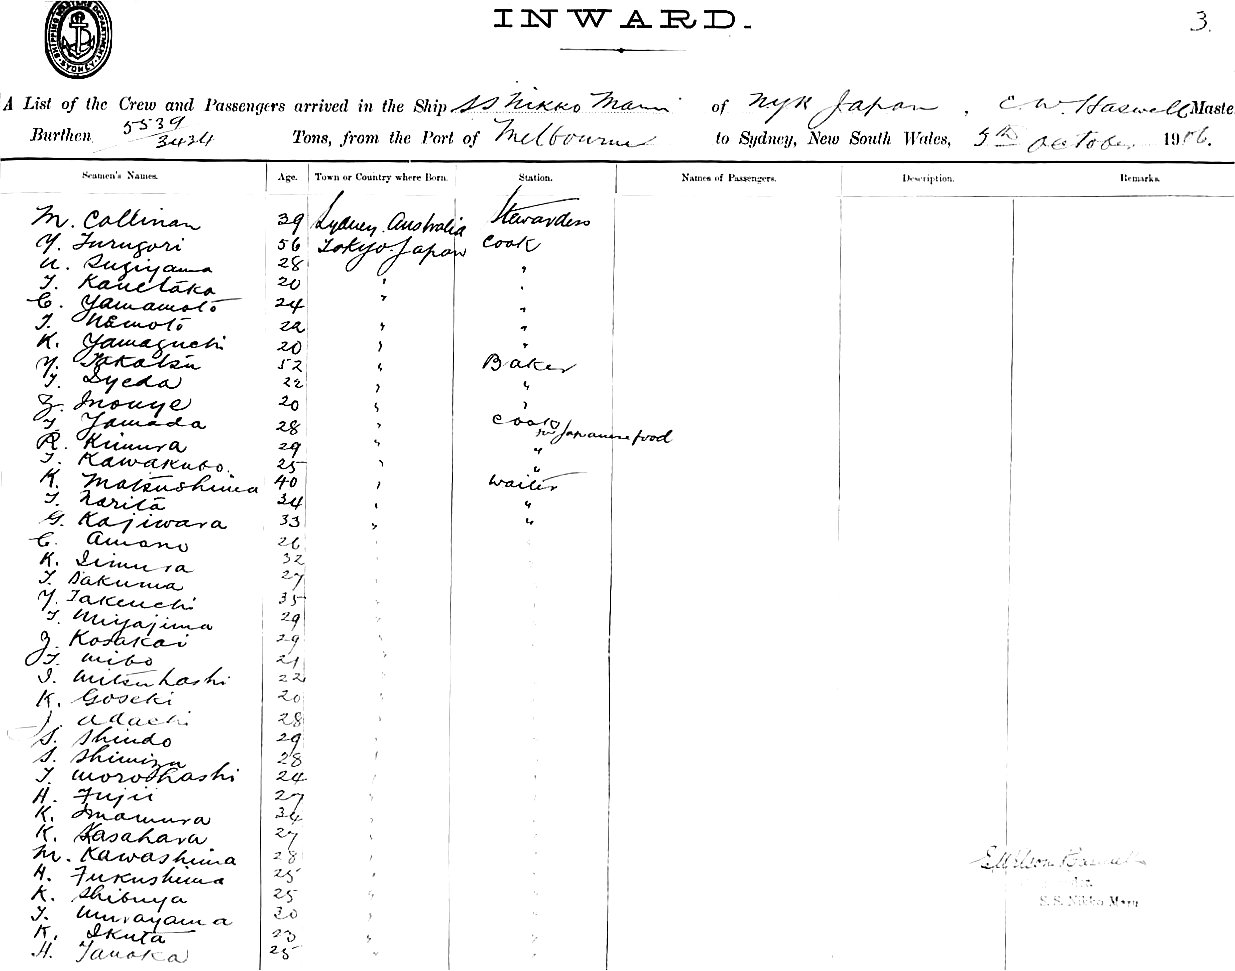 SHIPPING MASTERS DEPARTMENT SYDNEY
INWARD.
3.
A List of the Crew and Passengers arrived in the Ship SS Nikko Maru of NYK Japan, C W. Haswell Master
Burthen 5539/3424 Tons, from the Port of Melbourne to Sydney, New South Wales, 5th October 1916.
Seamen's Names. Age. Town or Country where Born. Station. Names of Passengers. Description. Remarks.
M. Callinan 39 Sydney Australia Stewardess
Y. Furugori 56 Tokyo Japan Cook
U. Sugiyama 28 "
T. Kanetaka 20 " "
C. Yamamoto 24 " "
T. Nemoto 22 " "
K. Yamaguchi 20 " "
Y. Takatsu 52 " Baker
T. Syeda 22 " "
Z. Inouye 20 " "
T. Yamada 28 " Cook for Japanese food
R. Kimura 29 " "
T. Kawakubo. 25 " "
K. Matsushima 40 " Waiter
T. Narita 34 " "
G. Kajiwara 33 " "
C. Amano 26 " "
K. Iimura 32 " "
T. Sakuma 27 " "
Y. Takeuchi 35 " "
T. Miyajima 29 " "
Z. Kosakai 29 " "
T. 21 " "
I. Mitsuhashi 22 " "
K. Goseki 20 " "
J. Adachi 28 " "
S. Shindo 29 " "
S. Shimizu 28 " "
T. Morohashi 24 " "
H. Fujii 27 " "
K. Imamura 34 " "
K. Kasahara 27 " "
M. Kawashima 28 " "
H. Fukushima 25 " "
K. Shibuya 25 " "
T. Murayama 30 " "
K. Ikuta 23 " "
H. Tanaka 25 " "
S. S. Nikko Maru